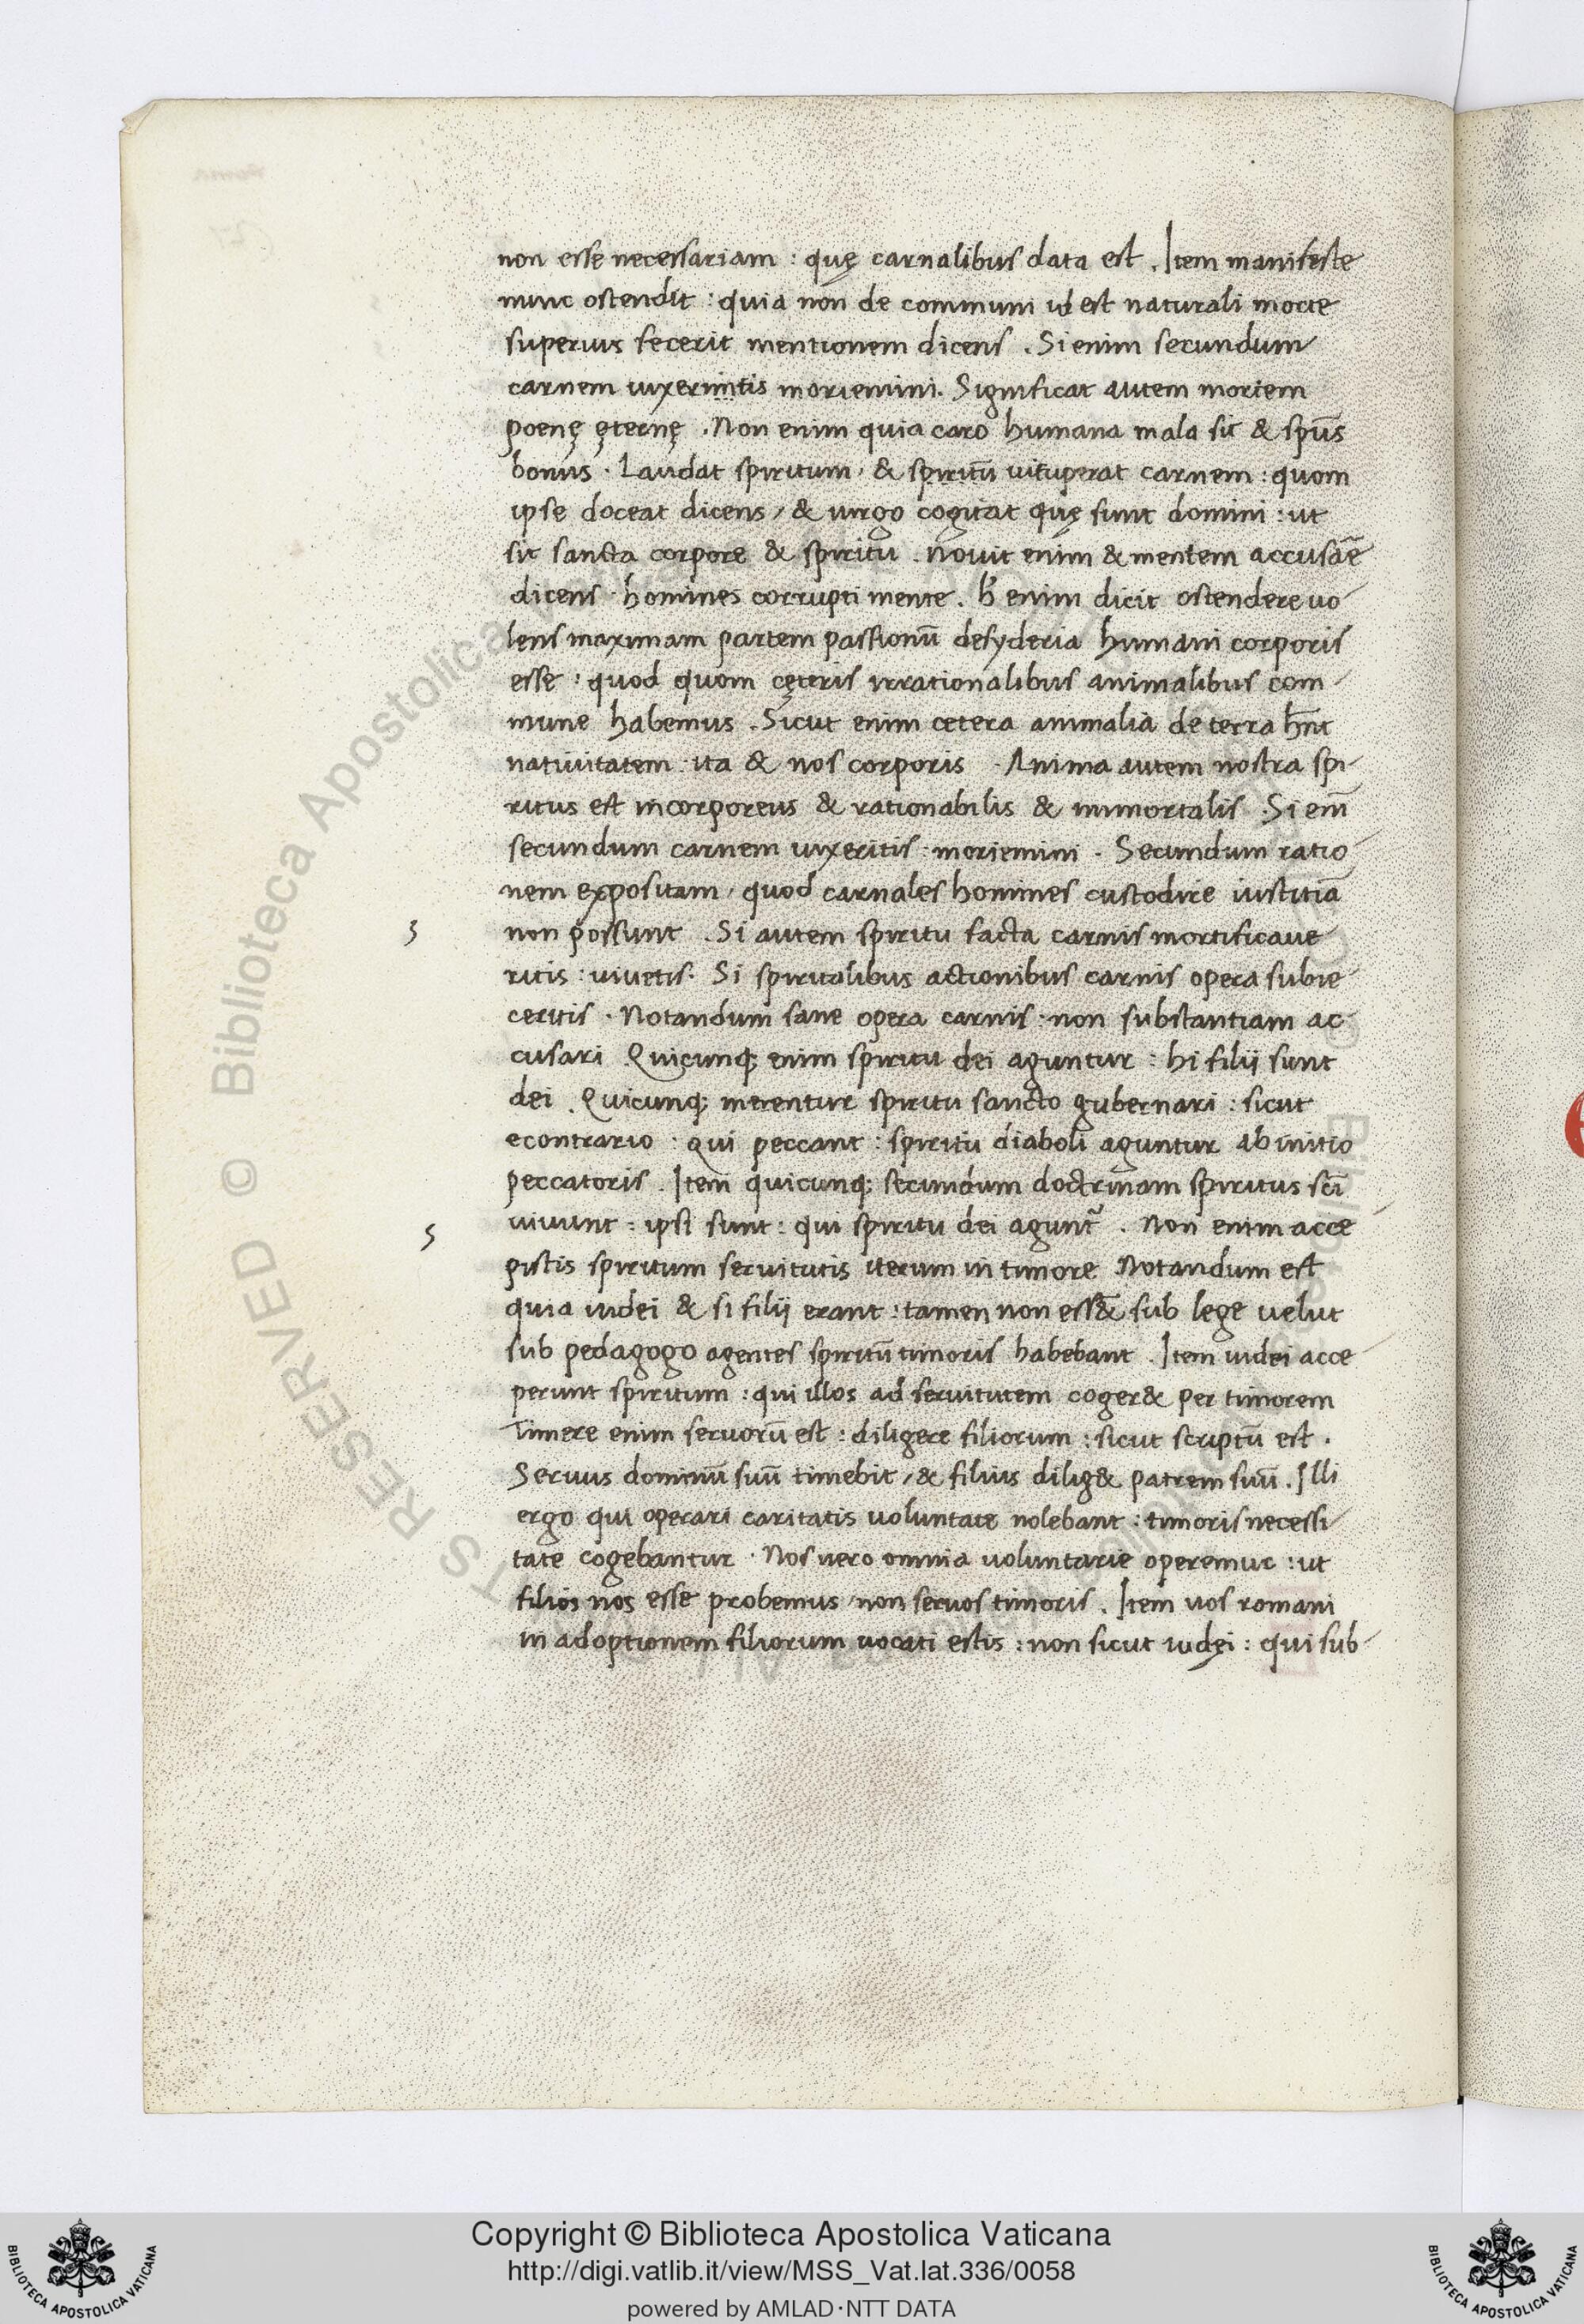 non esse necessariam : quę carnalibus data est . Item manifeste
nunc ostendit : quia non de communi id est naturali morte
superius fecerit mentionem dicens . Si enim secundum
carnem uixerimtis moriemini . Significat autem mortem
poenę ęternę . Non enim quia caro humana mala sit & spūs
bonus . Laudat spiritum , & spiritū uituperat carnem : quom
ipse doceat dicens / & uirgo cogitat quę sunt domini : ut
sit sancta corpore & spiritu . Nouit enim & mentem accusāe
dicens . homines corrupti mente . enim dicit ostendere uo-
lens maximam partem passionū desyderia humani corporis
esse : quod quom cęteris irrationalibus animalibus com-
mune habemus . Sicut enim cetera animalia de terra hn̄t
natiuitatem : ita & nos corporis . Anima autem nostra spi-
ritus est incorporeus & rationabilis & immortalis . Si eni̅
secundum carnem uixeritis : moriemini . Secundum ratio-
nem expositam / quod carnales homines custodire iustitiā
3 non possunt . Si autem spiritu facta carnis mortificaue-
ritis : uiuetis . Si spiritalibus actionibus carnis opera subie-
ceritis . Notandum sane opera carnis : non substantiam ac-
cusari . Quicunq; enim spiritu dei aguntur : hi filii sunt
dei . Quicunq; merentur spiritu sancto gubernari : sicut
econtrario : qui peccant : spiritu diaboli aguntur ab initio
peccatoris . Item quicunq; secundum doctrinam spiritus sc̄i
5 uiuunt : ipsi sunt : qui spiritu dei agunt᷑ . Non enim acce-
pistis spiritum seruitutis iterum in timore Notandum est
quia iudei & si filij erant : tamen non ess& sub lege uelut
sub pedagogo agentes spiritū timoris habebant . Item iudei acce-
perunt spiritum : qui illos ad seruitutem coger& per timorem
Timere enim seruorū est : diligere filiorum : sicut scriptū est .
Seruus dominū suū timebit / & filius dilig& patrem suū . Illi
ergo qui operari caritatis uoluntate nolebant : timoris necessi-
tate cogebantur . Nos uero omnia uoluntarie operemur : ut
filios nos esse probemus / non seruos timoris . Item uos romani
in adoptionem filiorum uocati estis : non sicut iudęi : qui sub-
© Biblioteca Apostolica Vaticana ALL RIGHTS RESERVED
Copyright © Biblioteca Apostolica Vaticana
http://digi.vatlib.it/view/MSS_Vat.lat.336/0058
powered by AMLAD·NTT DATA
BIBLIOTECA APOSTOLICA VATICANA
BIBLIOTECA APOSTOLICA VATICANA